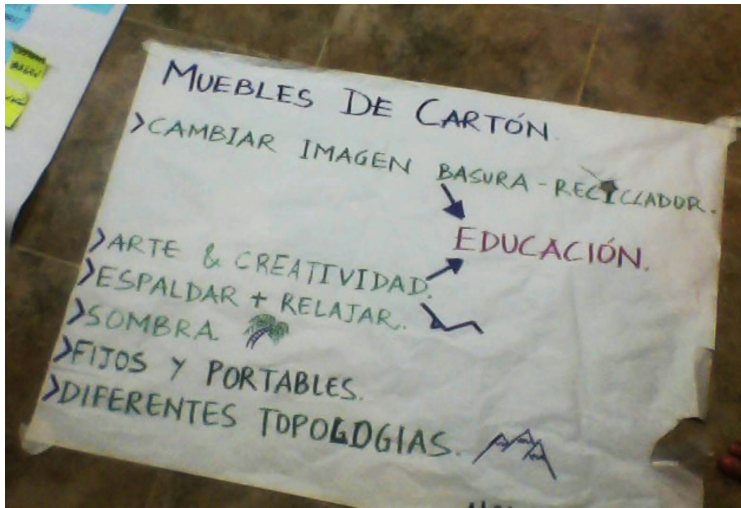 MUEBLES DE CARTÓN.
>CAMBIAR IMAGEN BASURA-RECICLADOR.
EDUCACIÓN.
>ARTE & CREATIVIDAD.
>ESPALDAR + RELAJAR.
>SOMBRA.
>FIJOS Y PORTABLES.
>DIFERENTES TOPOLOGIAS.